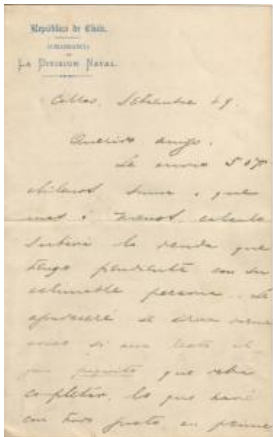 República de Chile.
COMANDANCIA
DE
LA DIVISION NAVAL.
Callao, Setiembre 49.
Querido amigo.
Le envio 507
chilenos suma a que
mas o menos calculo
la deuda que
tengo pendiente con su
estimable persona. Le
agradeceré se sirva
si aun resta al
gun piquito que deba
completar, lo que haré
con todo gusto, en prime